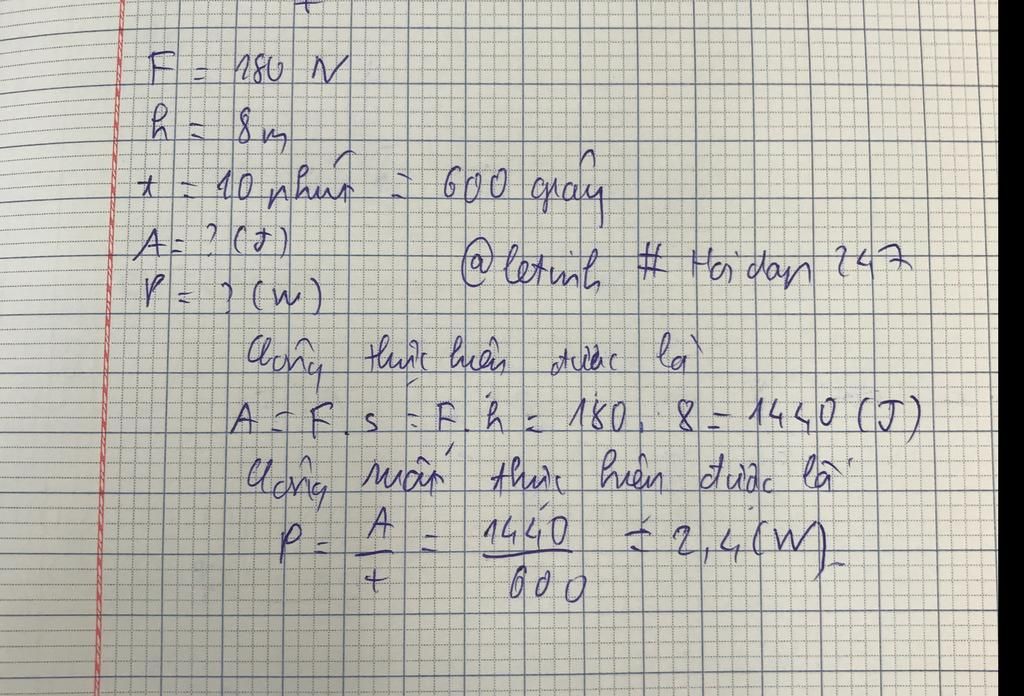 F = 180 N
h = 8m
t = 10 phút = 600 giây
A = ? (J)
@letinh # Hoidap 247
P = ? (W)
Công thực hiện được là
A = F. s = F. h = 180. 8 = 1440 (J)
Công suất thực hiện được là
P = A/t = 1440/600 = 2,4 (W)